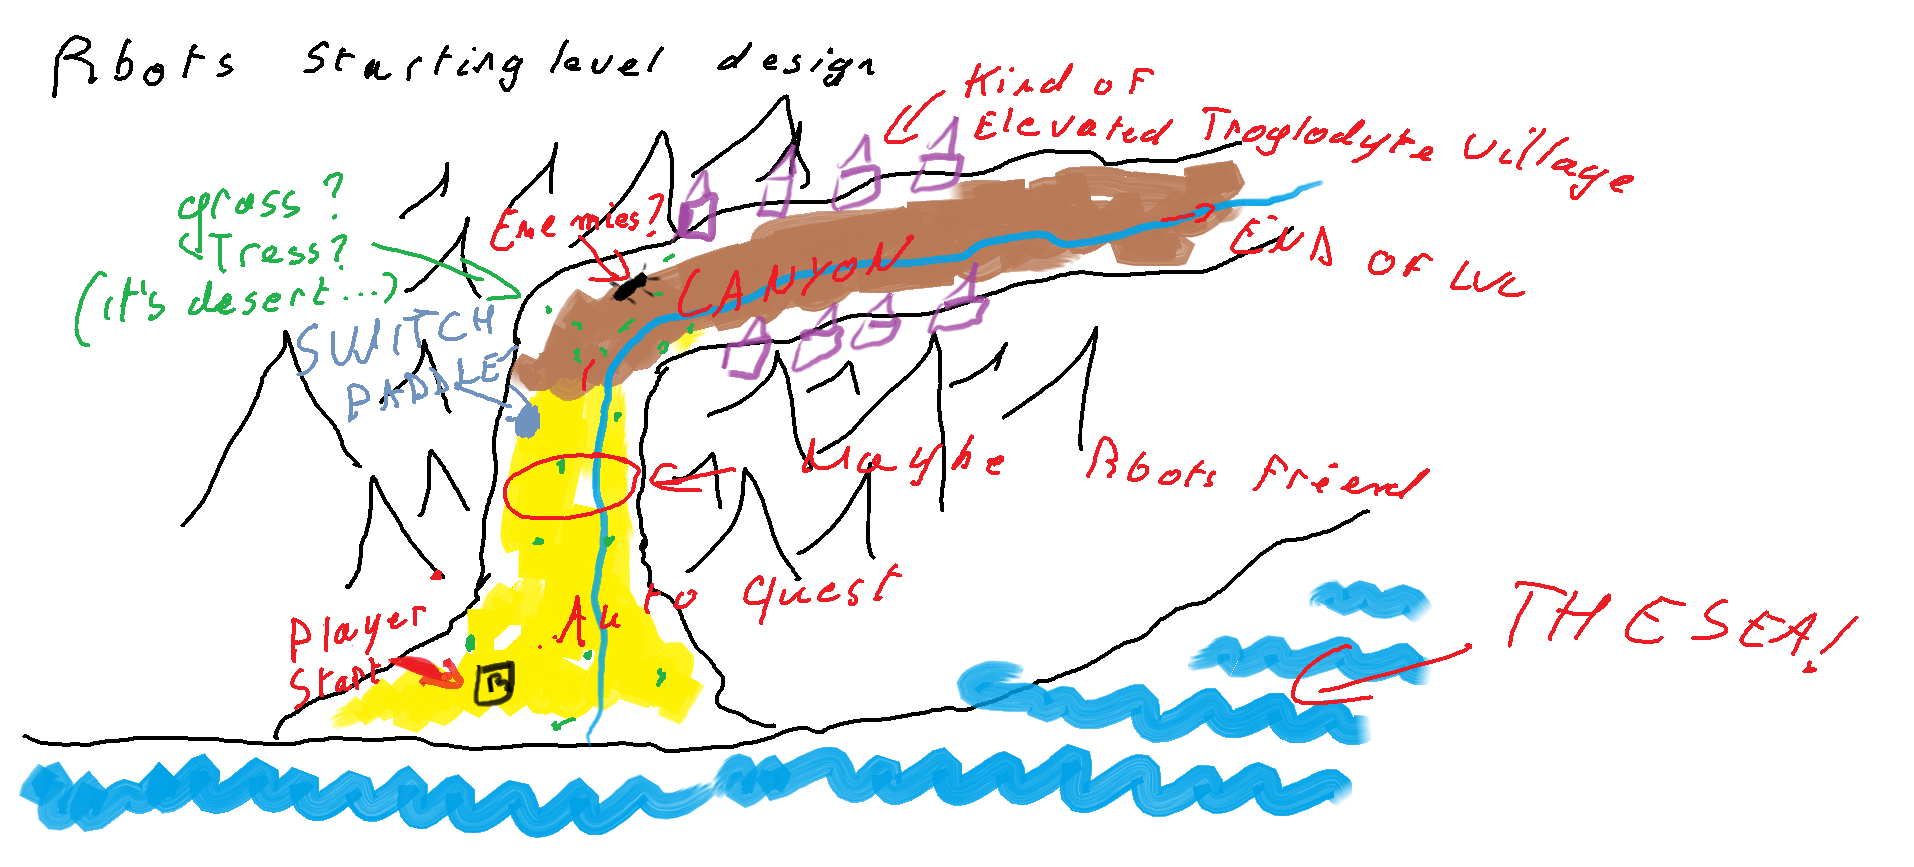 Rbots Starting level design
Kind of
Elevated Troglodyte Village
grass?
Tress?
(it's desert...)
Enemies?
CANYON
END OF LVL
SWITCH
PADDLE
Maybe Rbots Friend
Auto Quest
Player
Start
R
THE SEA!